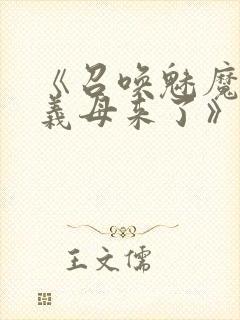 《召唤魅魔
義母来了》
王文儒